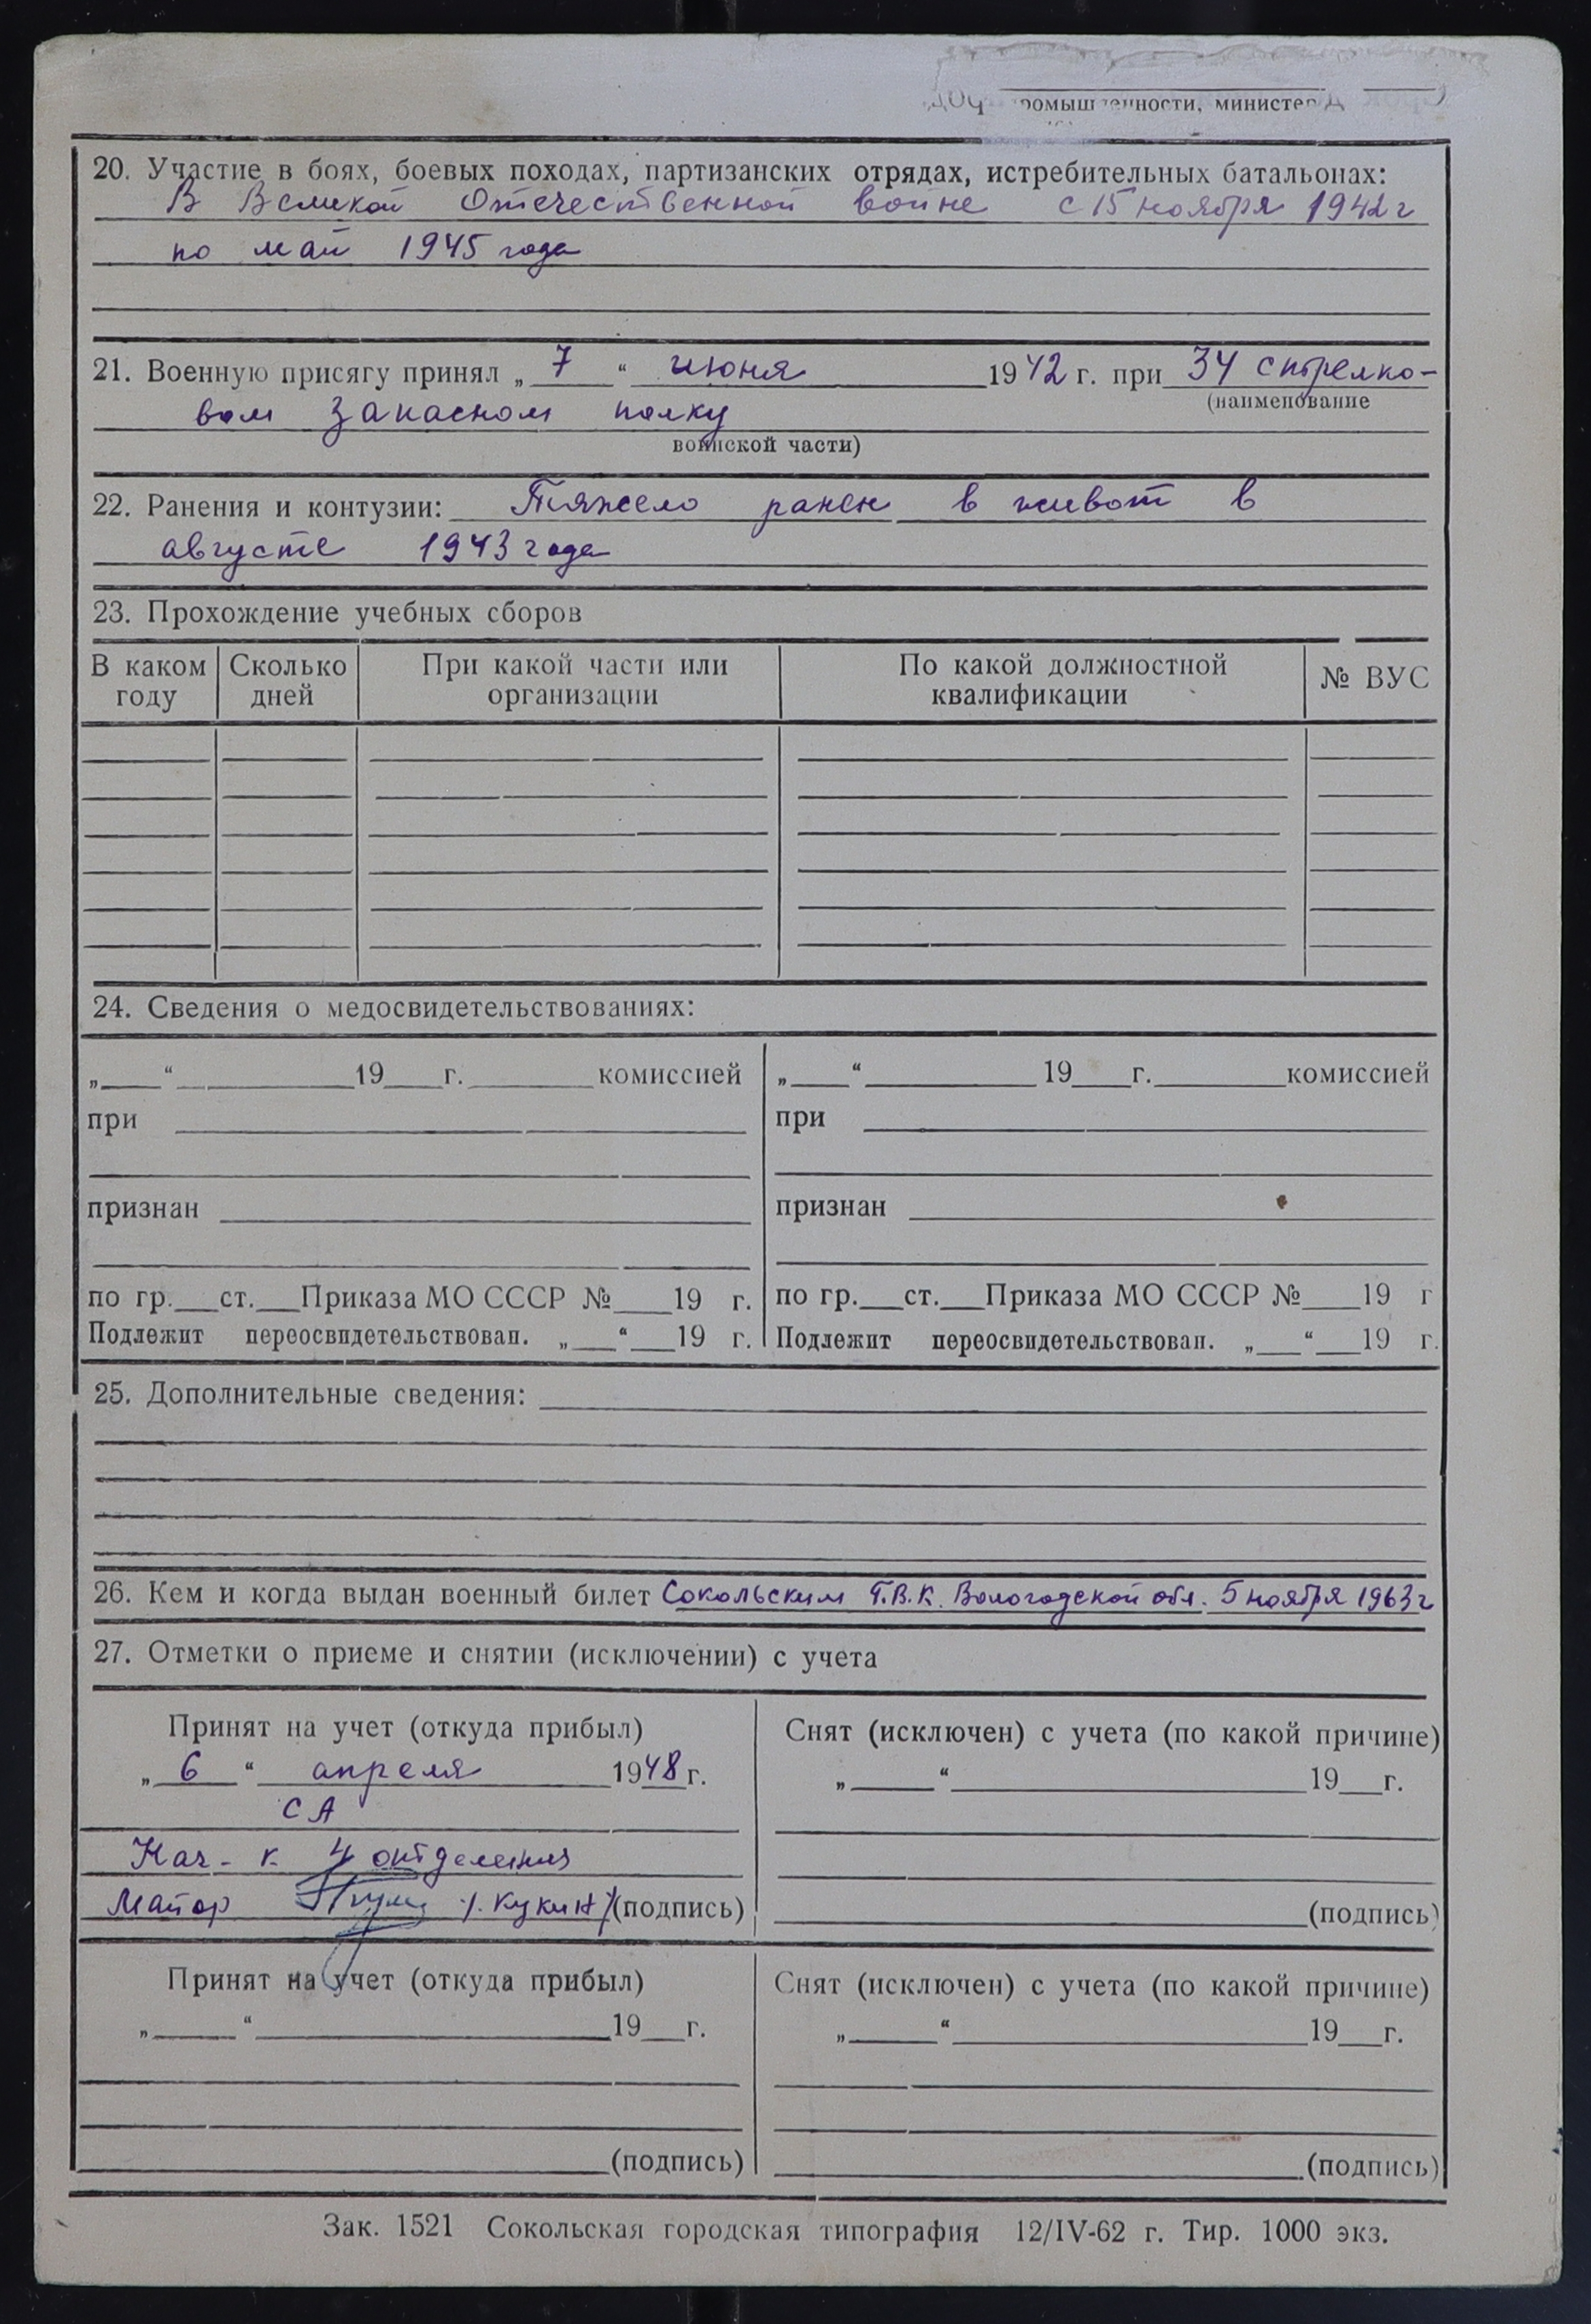 ромышленности, министер
20. Участие в боях, боевых походах, партизанских отрядах, истребительных батальонах:
В Великой Отечественной войне с 15 ноября 1942 г
по май 1945 года
21. Военную присягу принял „ 7 “ июня 1942 г. при 34 стрелко-
(наименование
вом запасном полку
воинской части)
22. Ранения и контузии: Тяжело ранен в живот в
августе 1943 года
23. Прохождение учебных сборов
В каком году Сколько дней При какой части или организации По какой должностной квалификации № ВУС
24. Сведения о медосвидетельствованиях:
„___“ ______19___г. ______комиссией „___“ ______19___г. ______комиссией
при при
признан признан
по гр.___ст.___Приказа МО СССР №___19 г. по гр.___ст.___Приказа МО СССР №___19 г
Подлежит переосвидетельствован. „___“___19 г. Подлежит переосвидетельствован. „___“___19 г.
25. Дополнительные сведения:
26. Кем и когда выдан военный билет Сокольским Г.В.К. Вологодской обл. 5 ноября 1963 г
27. Отметки о приеме и снятии (исключении) с учета
Принят на учет (откуда прибыл) Снят (исключен) с учета (по какой причине)
„ 6 “ апреля 1948 г. „___“ ______19___г.
СА
Нач-к 4 отделения
Майор /. Кукин / (подпись) (подпись)
Принят на учет (откуда прибыл) Снят (исключен) с учета (по какой причине)
„___“ ______19___г. „___“ ______19___г.
(подпись) (подпись)
Зак. 1521 Сокольская городская типография 12/IV-62 г. Тир. 1000 экз.